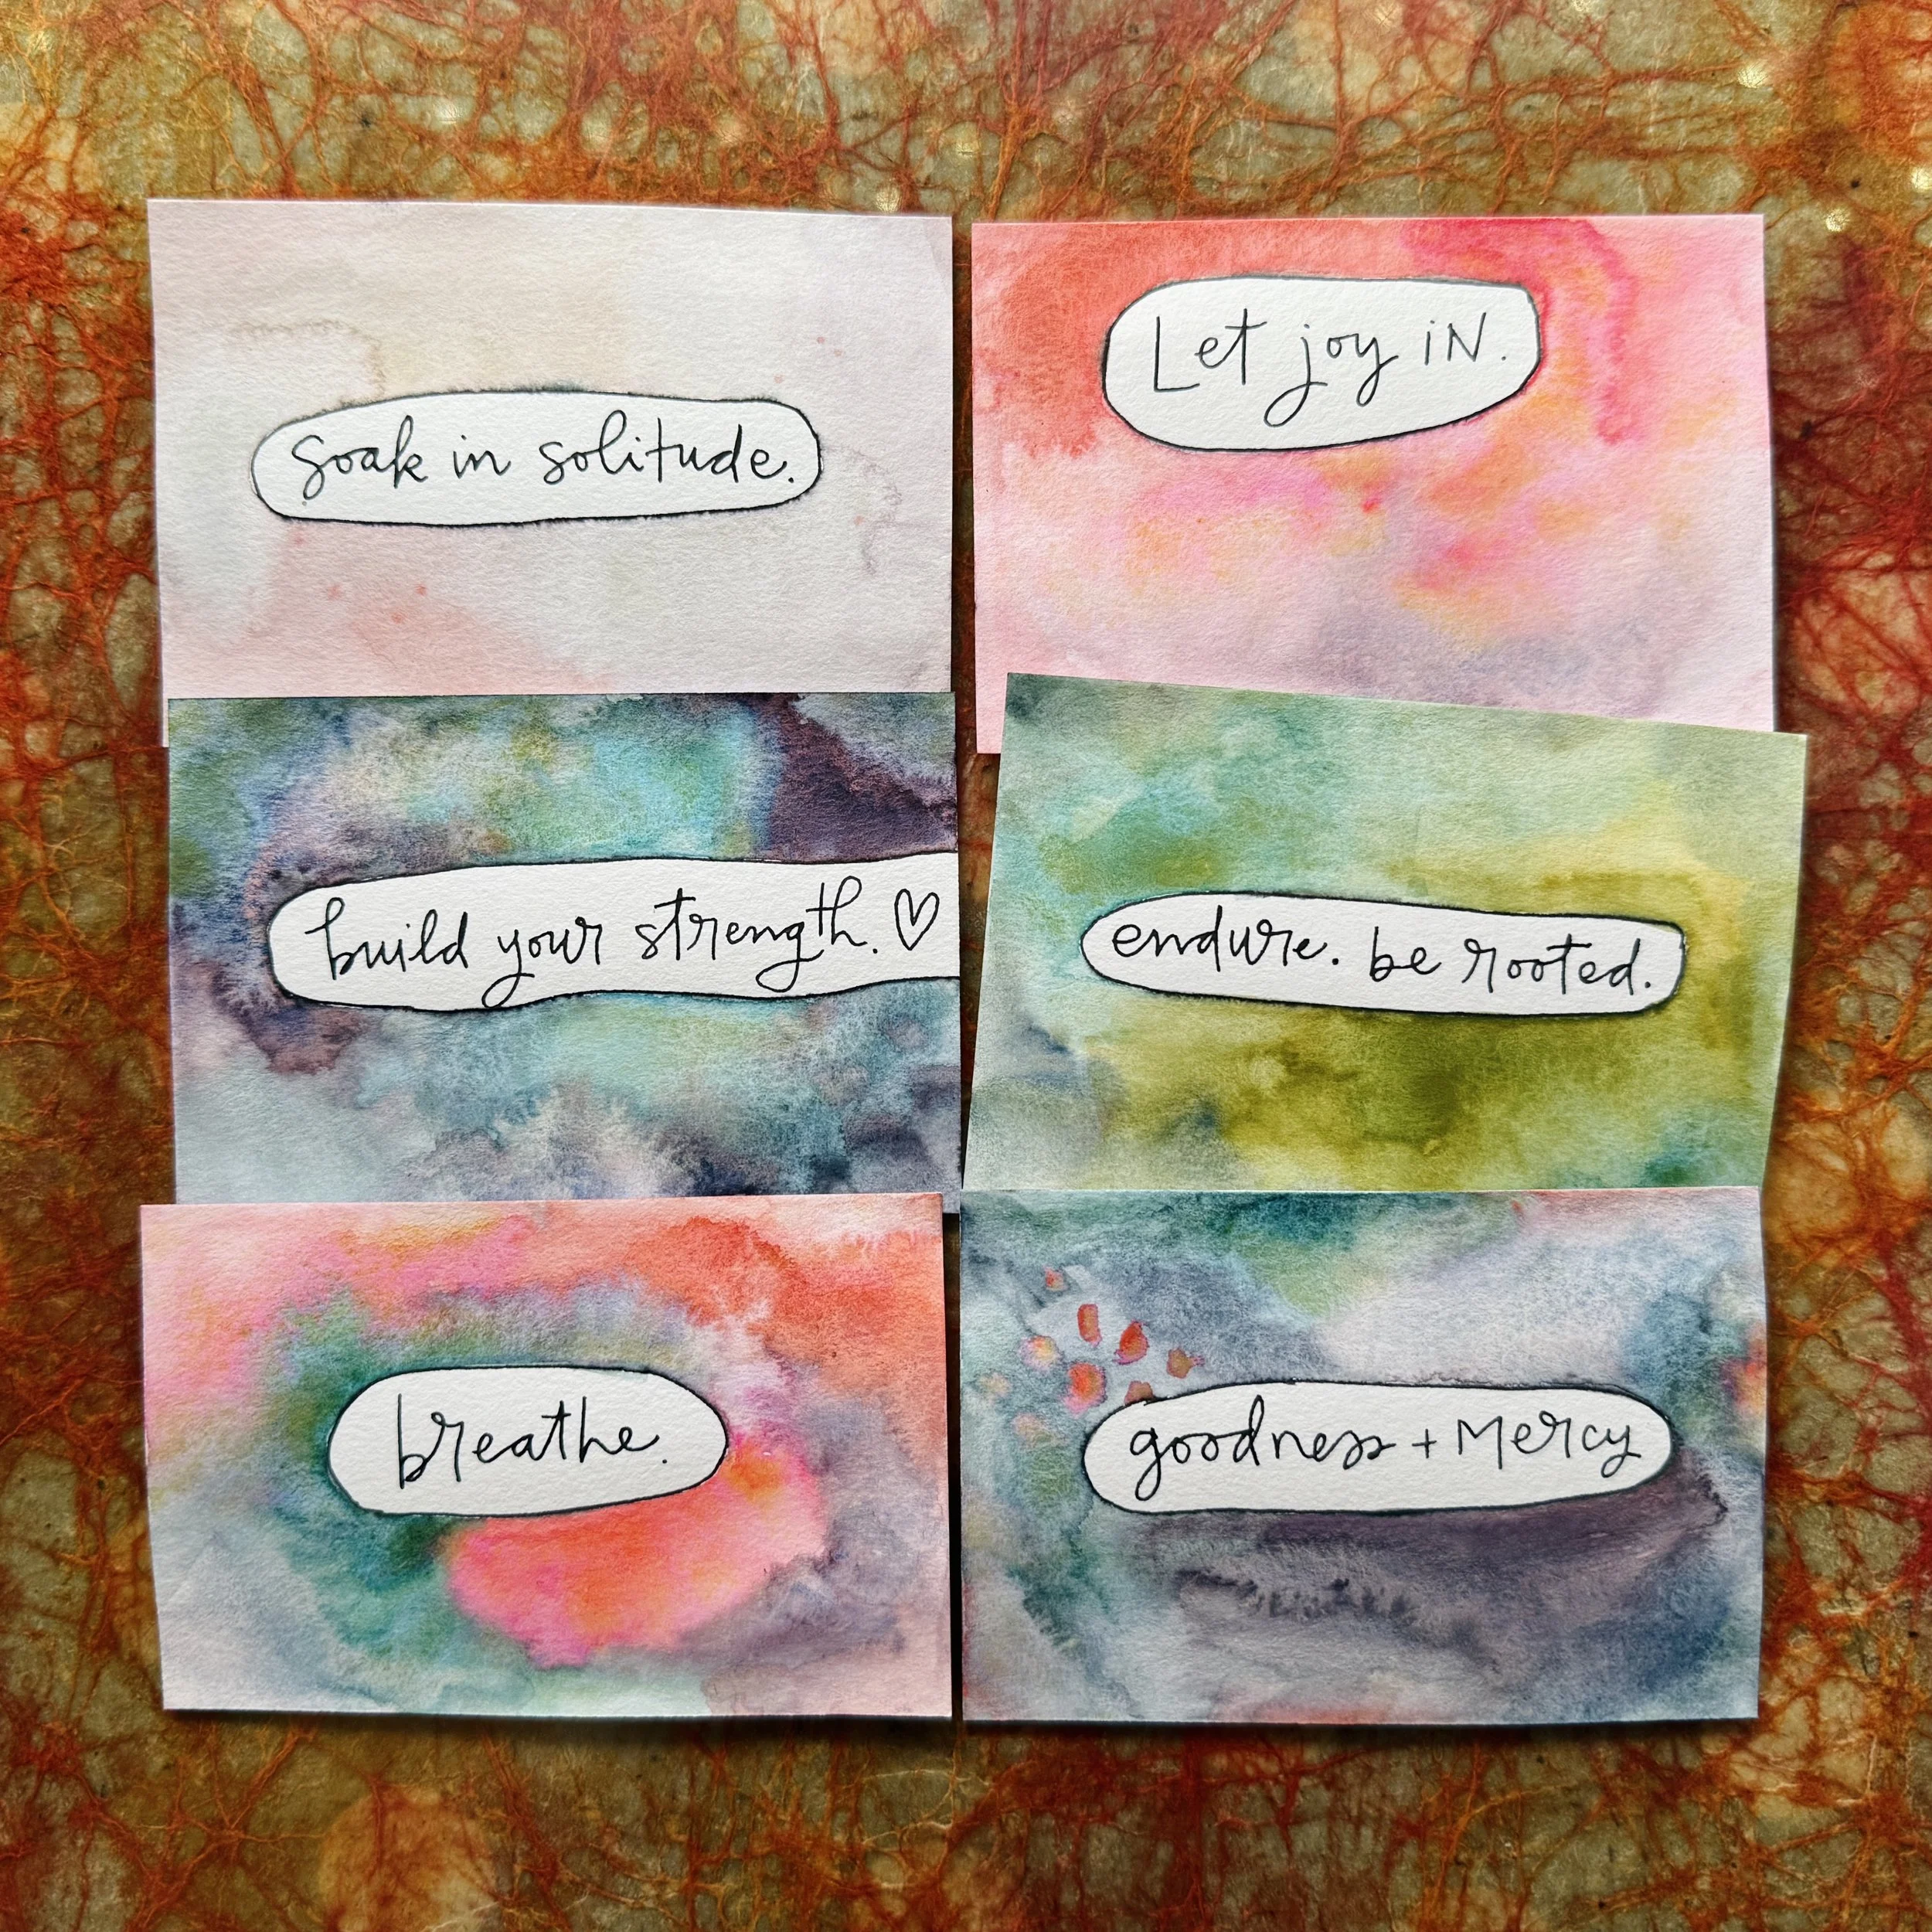 soak in solitude.
Let joy iN.
build your strength. ♡
endure. be rooted.
breathe.
goodness + Mercy